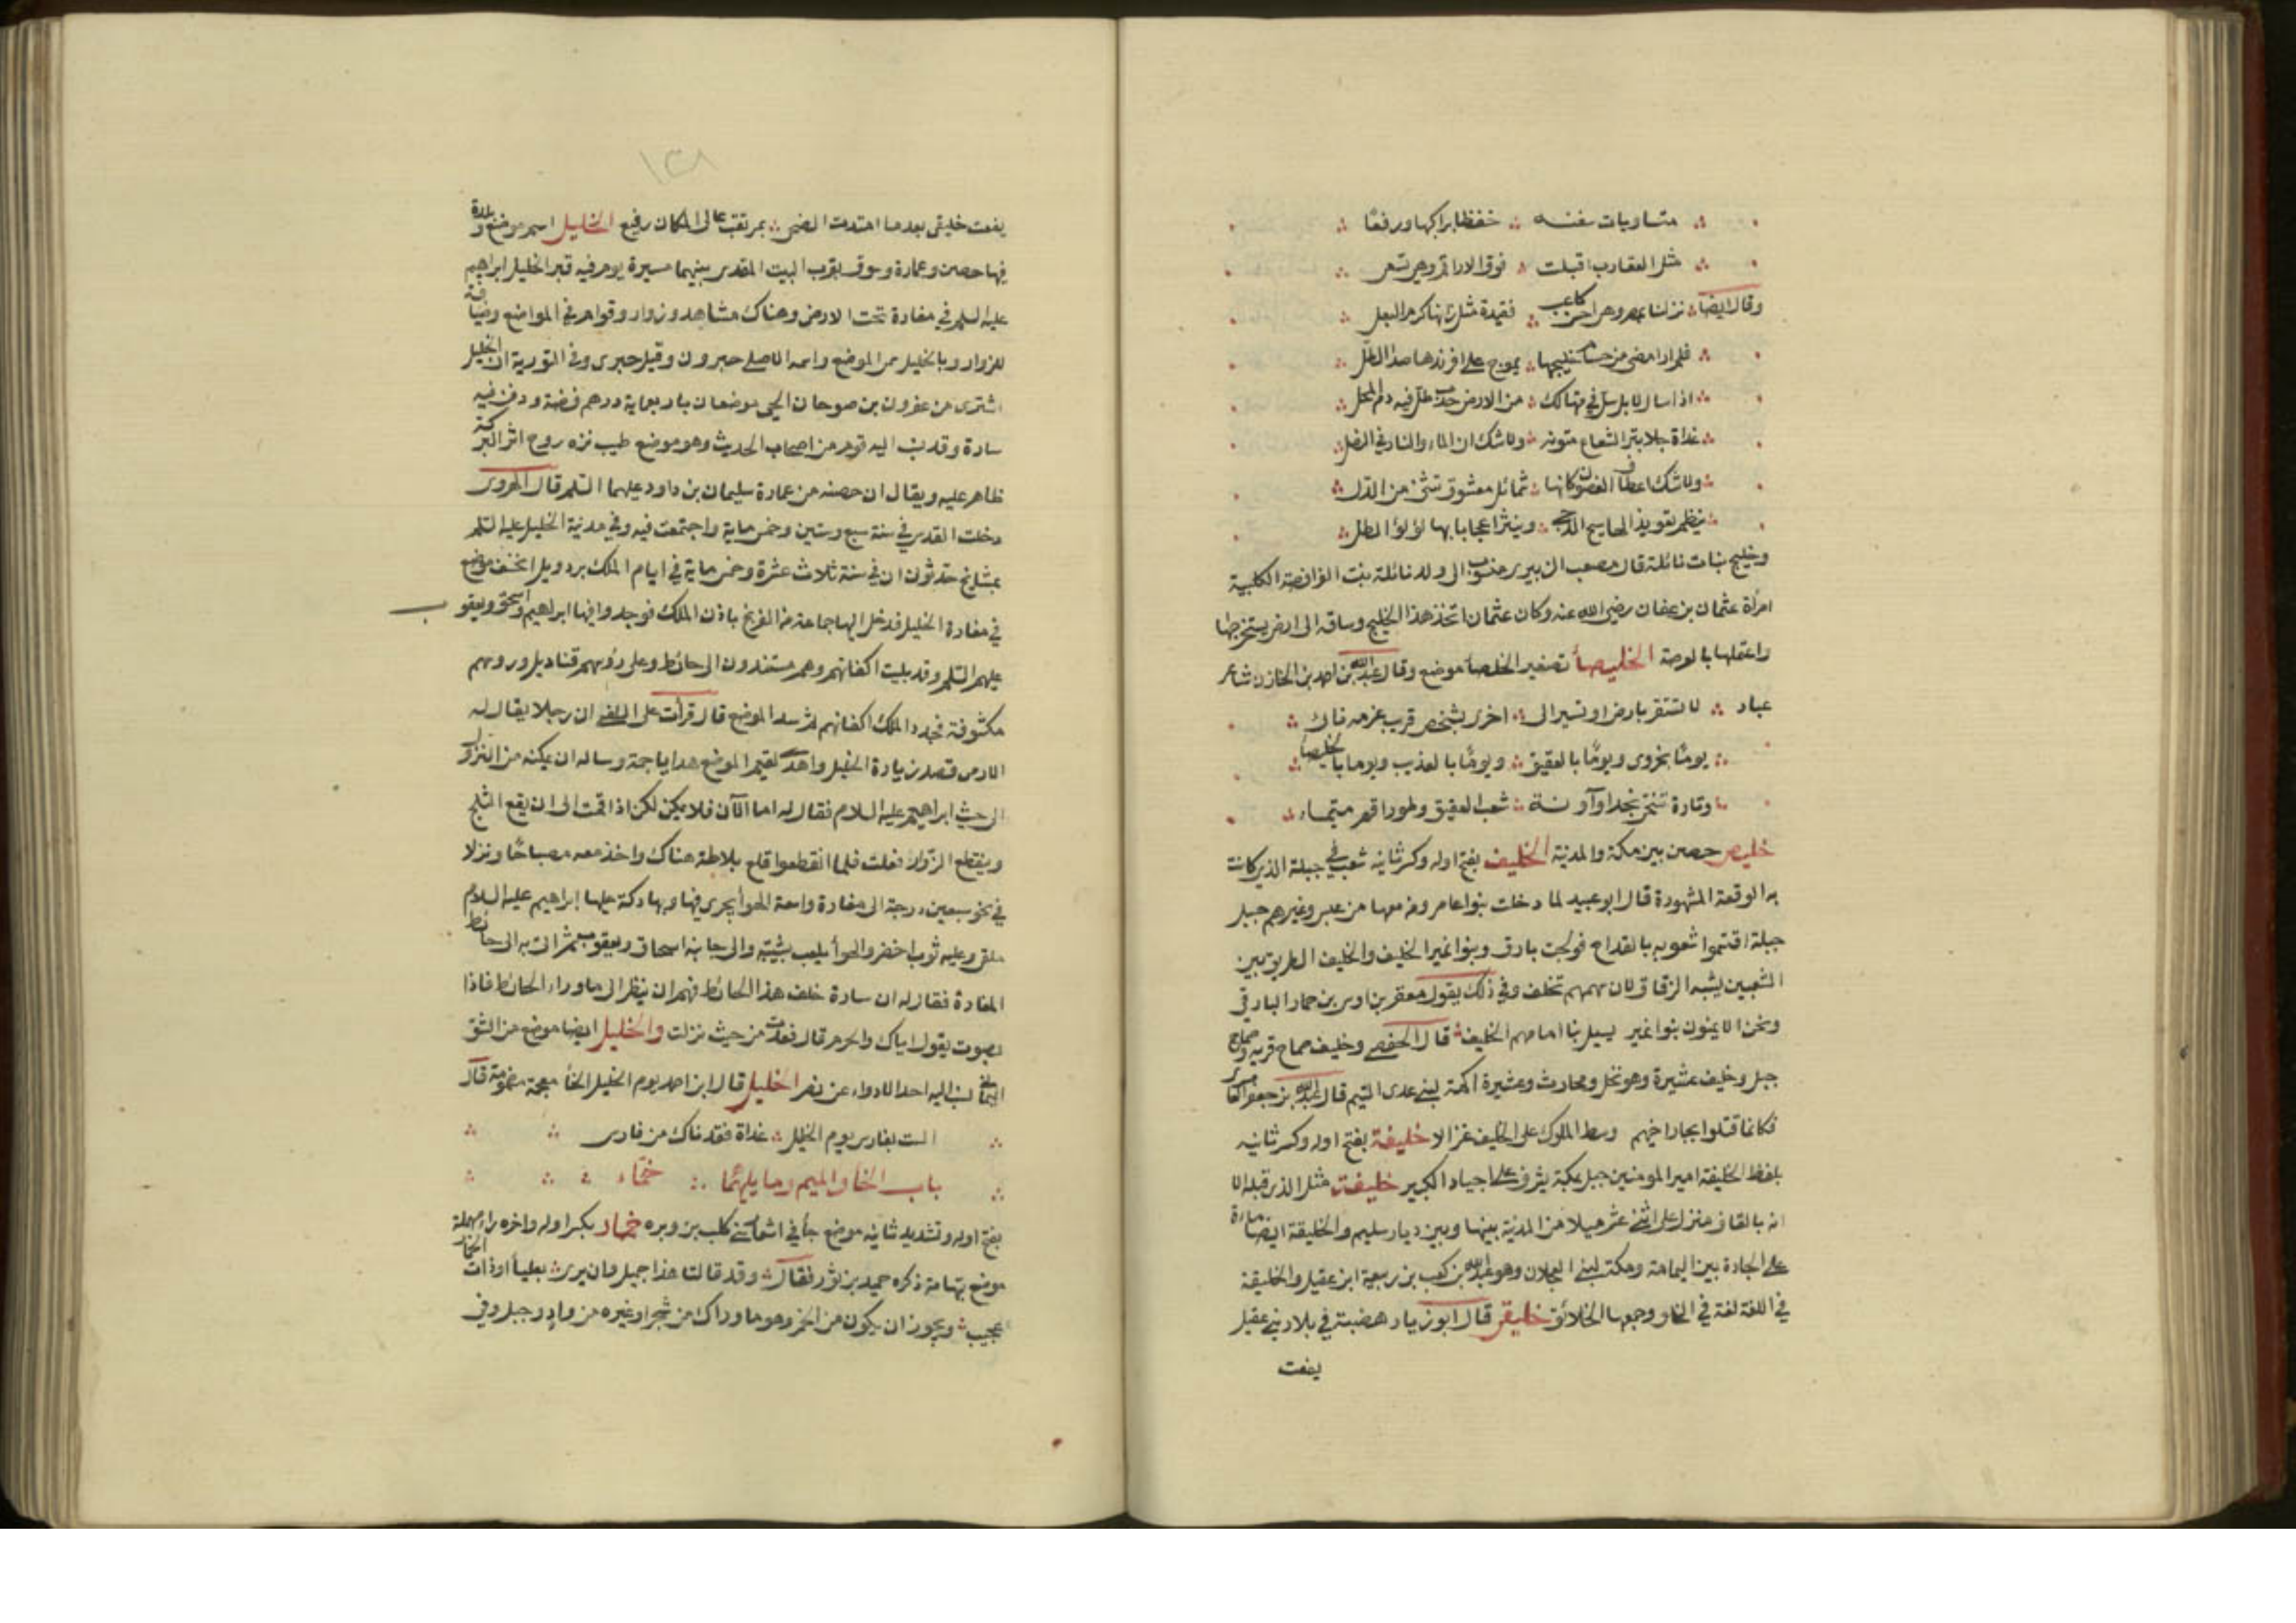 متساويات سفنه خفظا براكبها ورفعا
مثل العقارب اقبلت فوق الاراقم وهي تسعى
وقال ايضا نزلنا بمصر وهي احسن كاعب فقيدة مثل زانها كرم البعل
فلم ار امضى من حسام خليجها يموج على افرندها صدا الطل
اذا سال لا بل سل في متهالك من الارض جدب طل فيه دم المحل
غداة جلا بتر الشعاع متونه ولا شك ان الماء والنار في النصل
ولا شك اعطاف الغصون كانها شمائل معشوق تثنى من الدل
ينظم تعويذ الها سبح الدجى وينثر اعجابا بها لؤلؤ المطل
وخليج بنات نائلة قال مصعب الزبيري منسوب الى ولد نائلة بنت الفرافصة الكلبية
امرأة عثمان بن عفان رضي الله عنه وكان عثمان اتخذ هذا الخليج وساقه الى ارض يستخرجها
واعتملها بالعرصة الخليصأ تصغير الخلصأ موضع وقال عبد الله بن احمد بن الحارث شاعر
عباد لا تستقر بارض او تسير الى اخرى بشخص قريب عزمه ناك
يوما بحزوى ويوما بالعقيق ويوما بالعذيب ويوما بالخليصأ
وتارة تنتحي نجدا وآونة شعب العقيق وطورا قصر تيماء
خليص حصن بين مكة والمدينة الخليف بفتح اوله وكسر ثانيه شعب في جبلة الذي كانت
به الوقعة المشهورة قال ابو عبيد لما دخلت بنوا عامر ومن معها من عبس وغيرهم جبل
جبلة اقتسموا شعوبه بالقداح فولجت بارق وبنوا نمير الخليف والخليف الطريق بين
الشعبين يشبه الزقاق لان سهمهم تخلف وفي ذلك يقول معقر بن اوس بن حمار البارقي
ونحن الايمنون بنوا نمير يسيل بنا امامهم الخليف قال الحفصي وخليف صماح قرية وصماح
جبل وخليف عشيرة وهو نخل ومحارث وعشيرة اكمة لبني عدى التيم قال عبد الله بن جعفر العامري
فكانما قتلوا بجار اخيهم وسط الملوك على الخليف غزالا خليفة بفتح اوله وكسر ثانيه
بلفظ الخليفة امير المومنين جبل بمكة يشرف على اجياد الكبير خليقة مثل الذي قبله الا
انه بالقاف منزل على اثني عشر ميلا من المدينة بينها وبين ديار سليم والخليقة ايضا مارة
على الجادة بين اليمامة ومكة لبني العجلان وهو عبد الله بن كعب بن ربيعة ابن عقيل والخليقة
في اللغة لغة في الخلق وجمعها الخلائق خليقى قال ابو زياد هضبة في بلاد بني عقيل
يفعت
١٣١
يفعت خليقى بعدما امتدت الضحى بمرتقب عالى المكان رفيع الخليل اسم موضع وبلدة
فيها حصن وعمارة وسوق بقرب البيت المقدس بينهما مسيرة يوم فيه قبر الخليل ابراهيم
عليه السلم في مغارة تحت الارض وهناك مشاهد وزوار وقوام في المواضع وضيافة
للزوار وبالخليل سمى الموضع واسمه الاصلى حبرون وقيل حبرى وفي التورية ان الخليل
اشترى من عفرون بن صوحان الحي موضعا باربعماية درهم فضة ودفن فيه
سارة وقد نسب اليه قوم من اصحاب الحديث وهو موضع طيب نزه روح اثر البركة
ظاهر عليه ويقال ان حصنه من عمارة سليمان بن داود عليهما السلم قال الهروى
دخلت القدس في سنة سبع وستين وخمس ماية واجتمعت فيه وفي مدينة الخليل عليه السلم
بمشايخ حدثون ان في سنة ثلاث عشرة وخمس ماية في ايام الملك بردويل انخسف موضع
في مغارة الخليل فدخل اليها جماعة من الفرنج باذن الملك فوجدوا فيها ابراهيم واسحق ويعقوب
عليهم السلم وقد بليت اكفانهم وهم مستندون الى حائط وعلى رؤسهم قناديل ورؤسهم
مكشوفة فجدد الملك اكفانهم ثم سد الموضع قال قرأت على السلفى ان رجلا يقال له
الارمى قصد زيارة الخليل واهدى لقيم الموضع هدايا جمة وساله ان يمكنه من النزول
الى جثة ابراهيم عليه السلام فقال له اما الآن فلا يمكن لكن اذا اقمت الى ان يقع الثلج
وينقطع الزوار فعلت فلما انقطعوا قلع بلاطة هناك واخذ معه مصباحا ونزلا
في نحو سبعين درجة الى مغارة واسعة الهوأ يجرى فيها وبها دكة عليها ابراهيم عليه السلام
ملقى وعليه ثوب اخضر والهوأ يلعب بشيبته والى جانبه اسحاق ويعقوب ثم اتى به الى حائط
المغارة فقال له ان سارة خلف هذا الحائط فهم ان ينظر الى ما وراء الحائط فاذا
بصوت يقول اياك والحرم قال فعدت من حيث نزلت والخليل ايضا موضع من الشق
اليماني نسب اليه احد الادواء عن نصر الخليل قال ابن احمد يوم الخليل الخأ معجمة مضمومة قال
الست بفارس يوم الخليل غداة فقدناك من فارس
باب الخا والميم وما يليهما خمّاء
بفتح اوله وتشديد ثانيه موضع جأ في اشعار بني كلب بن وبره خمار بكسر اوله واخره راء مهملة
موضع بتهامة ذكره حميد بن ثور فقال وقد قالتا هذا حميد وان يرى بعلياأ اوذات الخمار
عجيب ويجوز ان يكون من الخمر وهو ما وراك من شجر او غيره من واد وجبل وفي